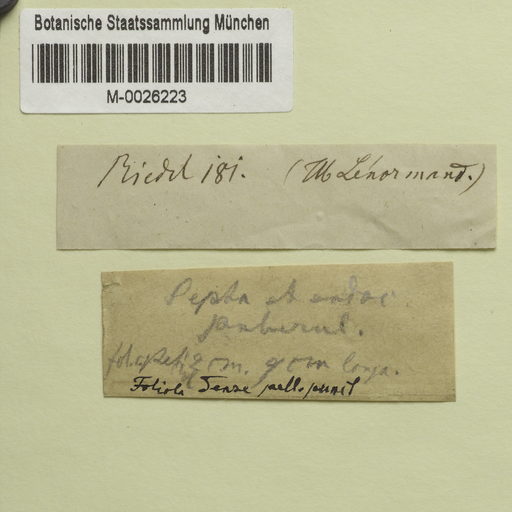 Botanische Staatssammlung München
M-0026223
Riedel 181. (Lénormand.)
Septa et endoc
puberul.
gom longa.
Foliola dense pell. punct